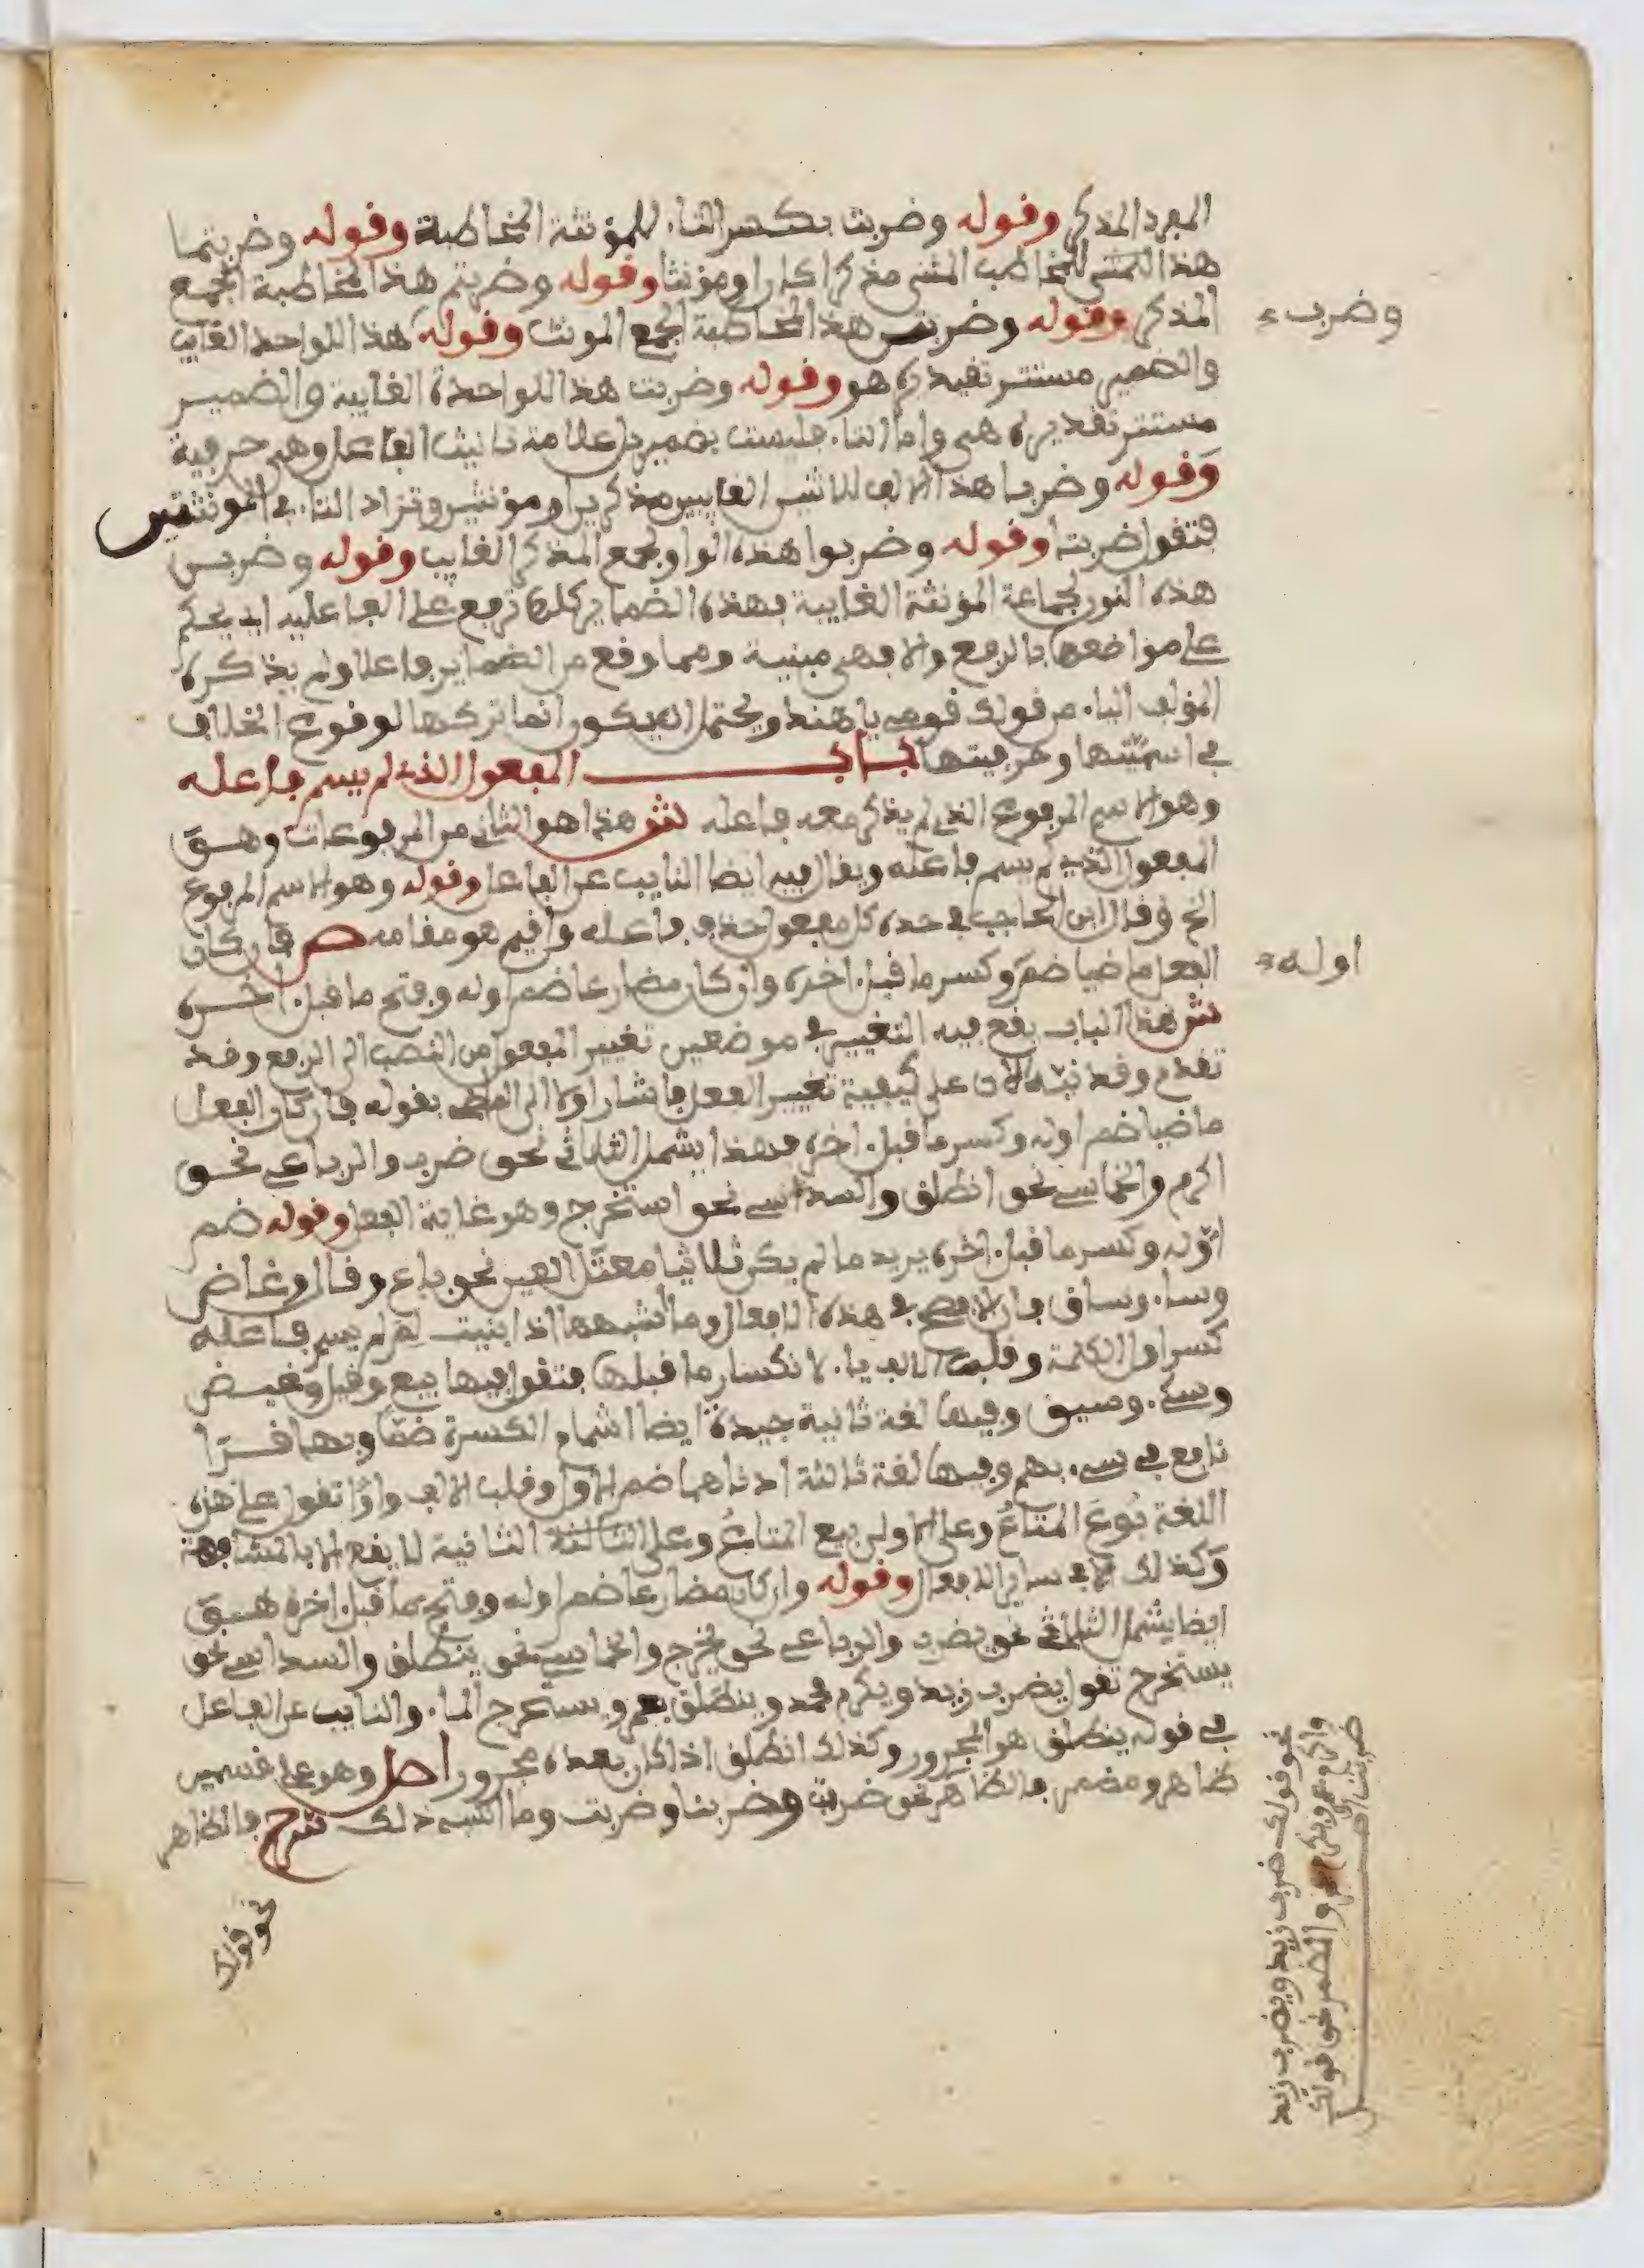 المفرد المذكر وقوله وضربت بكسر التاء للمؤنثة المخاطبة وقوله وضربتما
هذا المثنى للمخاطب المثنى مذكرا كان او مؤنثا وقوله وضربتم هذا لمخاطبة الجمع
المذكر وقوله وضربتن هذا لمخاطبة الجمع المونث وقوله هذا للواحد الغايب
وضرب
والضمير مستتر تقديره هو وقوله وضربت هذا للواحدة الغايبة والضمير
مستتر تقديره هي واما التاء فليست بضمير بل علامة تانيث الفاعل وهي حرفية
وقوله وضربا هذا الالف للاثنين الغايبين مذكرين او مؤنثين وتزاد التاء في المؤنثتين
فتقول ضربتا وقوله وضربوا هذه الواو لجمع المذكر الغايب وقوله وضربن
هذه النون لجماعة المؤنثة الغايبة فهذه الضماير كلها ترفع على الفاعلية اي يحكم
على مواضعها بالرفع والا فهي مبنية ومما وقع من الضماير فاعلا ولم يذكره
المؤلف الياء من قولك قومي يا هند ويحتمل ان يكون انما تركها لوقوع الخلاف
في اسميتها وحرفيتها باب المفعول الذي لم يسم فاعله
وهو الاسم المرفوع الذي لم يذكر معه فاعله ش هذا هو الثاني من المرفوعات وهو
المفعول الذي لم يسم فاعله ويقال فيه ايضا النايب عن الفاعل وقوله وهو الاسم المرفوع
الخ وقال ابن الحاجب في حده كل مفعول حذف فاعله واقيم هو مقامه ص فان كان
الفعل ماضيا ضم وكسر ما قبل اخره وان كان مضارعا ضم اوله وفتح ما قبل اخره
اوله
ش هذا الباب يقع فيه التغيير في موضعين تغيير المفعول من النصب الى الرفع وقد
تقدم وقد نبه الان على كيفية تغيير الفعل فاشار اولا الى بقوله فان كان الفعل
ماضيا ضم اوله وكسر ما قبل اخره فهذا يشمل الثلاثي نحو ضرب والرباعي نحو
اكرم والخماسي نحو انطلق والسداسي نحو استخرج وهو غاية الفعل وقوله ضم
اوله وكسر ما قبل اخره يريد ما لم يكن ثلاثيا معتل العين نحو باع وقال وغاض
وساء وساق فان الافصح في هذه الافعال وما اشبهها اذا بنيت لم يسم فاعله
كسر اول الكلمة وقلبت الالف ياء لانكسار ما قبلها فتقول فيها بيع وقيل وغيض
وسيء وسيق وفيها لغة ثانية جيدة ايضا اشمام الكسرة ضما وبها قرأ
نافع في سيء بهم وفيها لغة ثالثة ادناها ضم الاول وقلب الالف واوا تقول على هذه
اللغة بوع المتاع وعلى الاولى بيع المتاع وعلى الثالثة الثانية لا يقع الا بالمشافهة
وكذلك في ساير الافعال وقوله وان كان مضارعا ضم اوله وفتح ما قبل اخره هو
ايضا يشمل الثلاثي نحو يضرب والرباعي نحو يخرج والخماسي نحو ينطلق والسداسي نحو
يستخرج تقول يضرب زيد ويكرم محمد وينطلق بعمرو يستخرج الماء والنايب عن الفاعل
في قوله ينطلق هو المجرور وكذلك انطلق اذا كان بعده مجرور اصل وهو على قسمين
ظاهر ومضمر فالظاهر نحو ضربت وضربنا وضربت وما اشبه ذلك شرح فالظاهر
نحو قولك
نحو قولك ضرب زيد ويضرب زيد
واكرم عمرو ويكرم عمرو والمضمر نحو قولك
ضربت